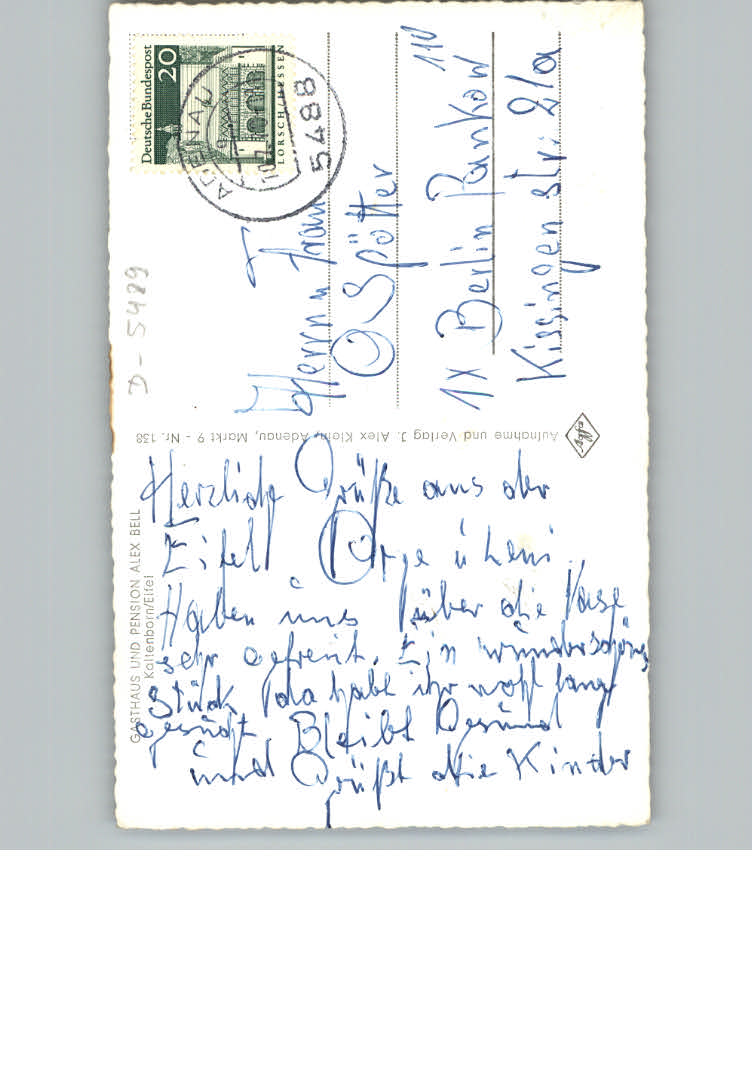 GASTHAUS UND PENSION ALEX BELL
Kaltenborn/Eifel
Herzliche Grüße aus der
Eifel
Haben uns über die Vase
sehr gefreut. Ein wunderschönes
Stück da habt ihr wohl lang
gesucht. Bleibt Gesund
und Grüßt die Kinder
Aufnahme und Verlag J. Alex Klein, Adenau, Markt 9 - Nr. 138
Agfa
D-5489
Deutsche Bundespost
20
LORSCH/HESSEN
ADENAU
5488
Herrn u Frau
O Spötter
1X Berlin Pankow 110
Kissingen Str. 21a